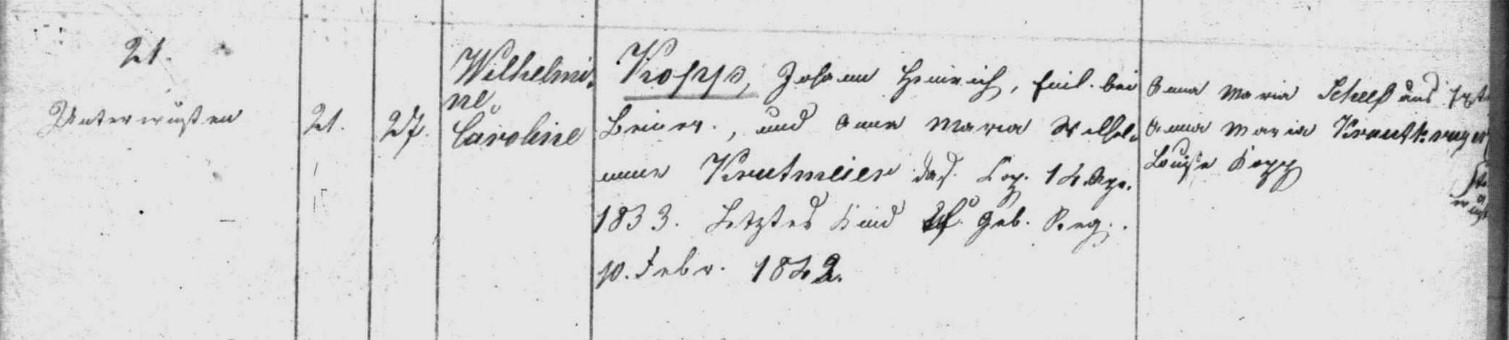 21.
Unterwüsten
21.
27.
Wilhelmi-
ne
Caroline
Kopp, Johann Heinrich, Einl. bei
und Anna Maria Wilhel-
mine Krutmeier das. Cop. 14 Apr.
1833. Letztes Kind Geb. Reg.
10. Febr. 1842.
Anna Maria Scheef aus
Anna Maria Krautkrüger
Louise Kopp